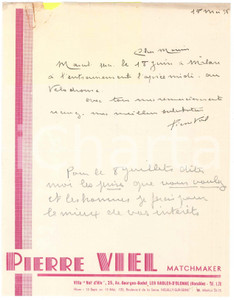 18 Mai
Cher
Marcel sera le 18 juin a Milan
a l'entrainement l'après midi au
Velodrome
avec tous mes remerciements
recevez mes meilleures
Pierre Viel
Pour le 8 Juillet dites
moi les prix que vous voulez
et les hommes je ferai pour
le mieux de vos intérêts
PIERRE VIEL
MATCHMAKER
Villa "Val d'Or", 25, Av. Georges-Godet, LES SABLES-D'OLONNE (Vendée)